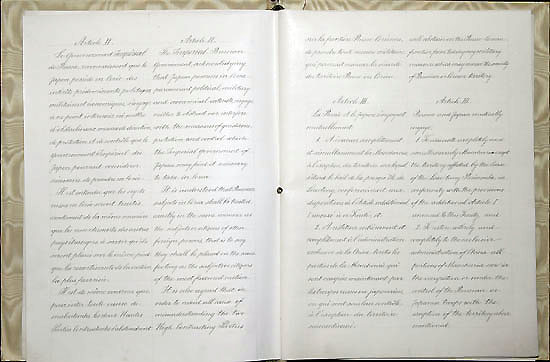 Article II.
Le Gouvernement Impérial
de Russie, reconnaissant que le
Japon possède en Corée des
intérêts prédominants politiques,
militaires et économiques, s'engage
à ne point intervenir ni mettre
d'obstacles aux mesures de direction,
de protection et de contrôle que le
Gouvernement Impérial du
Japon pourrait considérer
nécessaire de prendre en Corée.
Il est entendu que les sujets
russes en Corée seront traités
exactement de la même manière
que les ressortissants des autres
pays étrangers, à savoir qu'ils
seront placés sur le même pied
que les ressortissants de la nation
la plus favorisée.
Il est de même convenu que
pour éviter toute cause de
malentendus les deux Hautes
Parties Contractantes s'abstiendront
Article II.
The Imperial Russian
Government, acknowledging
that Japan possesses in Corea
paramount political, military
and economical interests, engage
neither to obstruct nor interfere
with the measures of guidance,
protection and control which
the Imperial Government of
Japan may find it necessary
to take in Corea.
It is understood that Russian
subjects in Corea shall be treated
exactly in the same manner as
the subjects or citizens of other
foreign Powers, that is to say,
they shall be placed on the same
footing as the subjects or citizens
of the most favored nation.
It is also agreed that, in
order to avoid all cause of
misunderstanding, the two
High Contracting Parties
sur la frontière Russo-Coréenne,
de prendre toute mesure militaire
qui pourrait menacer la sécurité
du territoire Russe ou Coréen.
Article III.
La Russie et le Japon s'engagent
mutuellement:
1. A évacuer complètement
et simultanément la Mandchourie
à l'exception du territoire sur lequel
s'étend le bail de la presqu'île de
Liaotong, conformément aux
dispositions de l'article additionnel
I annexé à ce Traité, et
2. A restituer entièrement et
complètement à l'administration
exclusive de la Chine toutes les
parties de la Mandchourie qui
sont occupées maintenant par
les troupes russes ou japonaises
ou qui sont sous leur contrôle,
à l'exception du territoire
susmentionné.
will abstain, on the Russo-Corean
frontier, from taking any military
measure which may menace the security
of Russian or Corean territory.
Article III.
Russia and Japan mutually
engage:
1. To evacuate completely and
simultaneously Manchuria except
the territory affected by the lease
of the Liaotung Peninsula, in
conformity with the provisions
of the additional Article I
annexed to this Treaty, and
2. To restore entirely and
completely to the exclusive
administration of China all
portions of Manchuria now in
the occupation or under the
control of the Russian or
Japanese troops with the
exception of the territory above
mentioned.